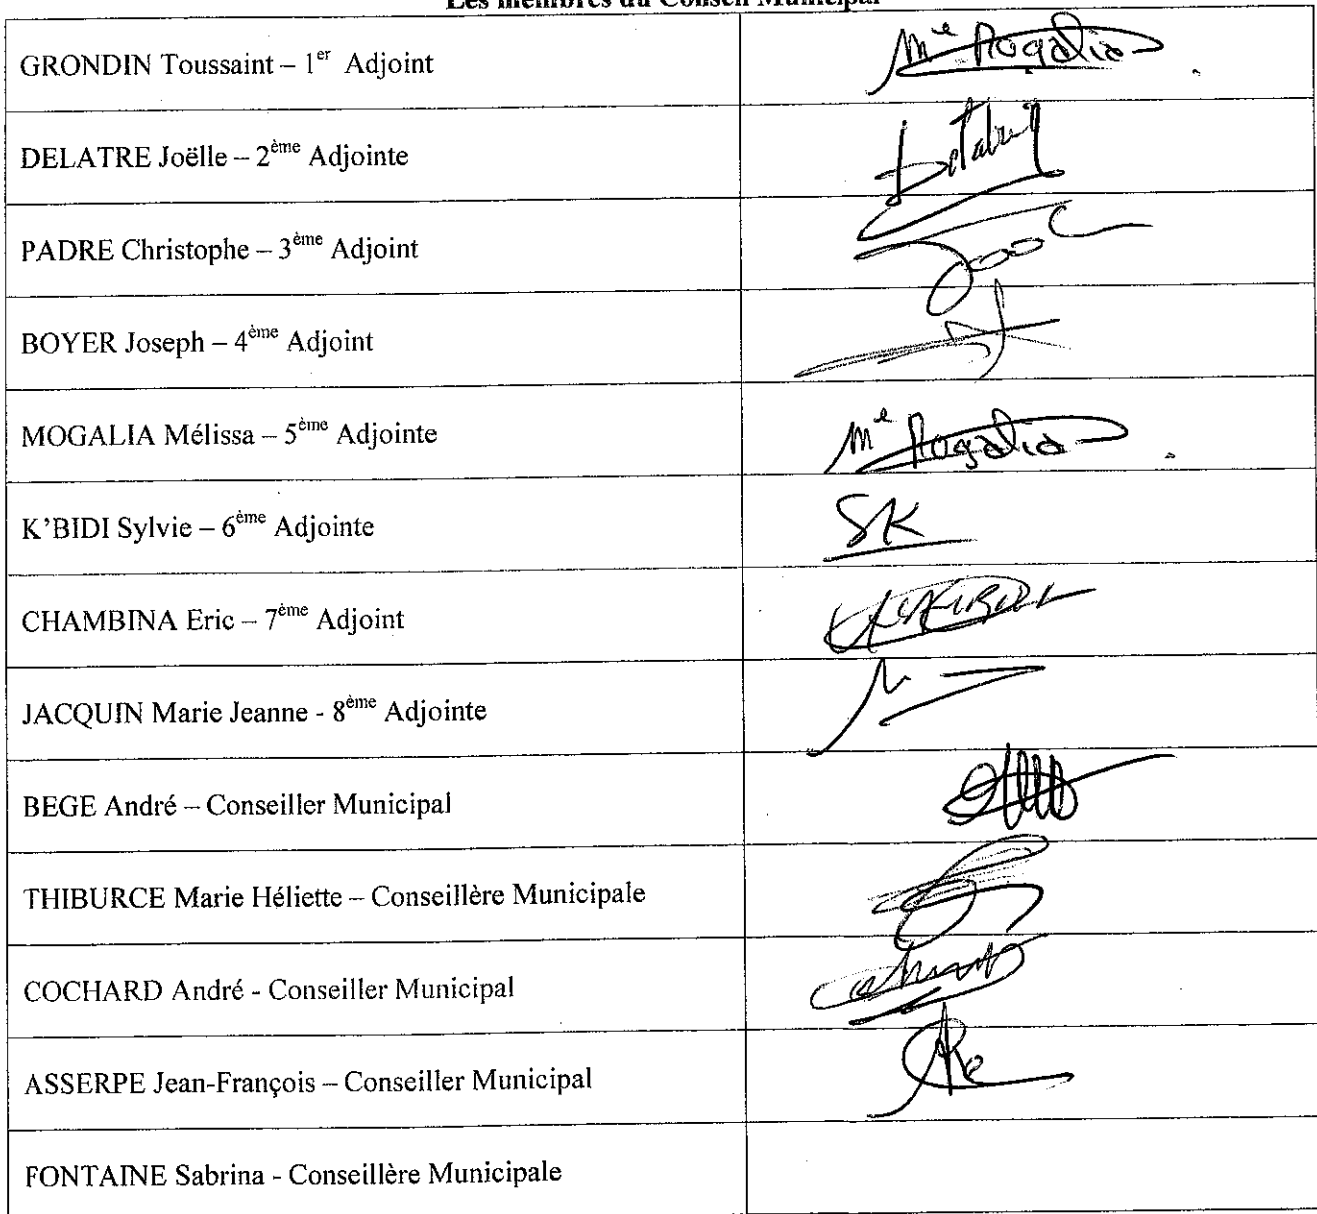 Les membres du Conseil Municipal
GRONDIN Toussaint – 1er Adjoint
Me Mogalia
DELATRE Joëlle – 2ème Adjointe
PADRE Christophe – 3ème Adjoint
BOYER Joseph – 4ème Adjoint
MOGALIA Mélissa – 5ème Adjointe
Me Mogalia
K'BIDI Sylvie – 6ème Adjointe
SK
CHAMBINA Eric – 7ème Adjoint
JACQUIN Marie Jeanne - 8ème Adjointe
BEGE André – Conseiller Municipal
THIBURCE Marie Héliette – Conseillère Municipale
COCHARD André - Conseiller Municipal
ASSERPE Jean-François – Conseiller Municipal
FONTAINE Sabrina - Conseillère Municipale